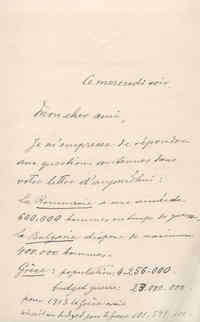 Ce mercredi soir.
Mon cher ami,
Je m'empresse de répondre
aux questions contenues dans
votre lettre d'aujourd'hui :
La Roumanie a une armée de
600.000 hommes en temps de guerre,
La Bulgarie dispose de maximum
400.000 hommes.
Grèce : population 4.256.000
budget guerre : 23.000.000
pour 1913 la Grèce avait